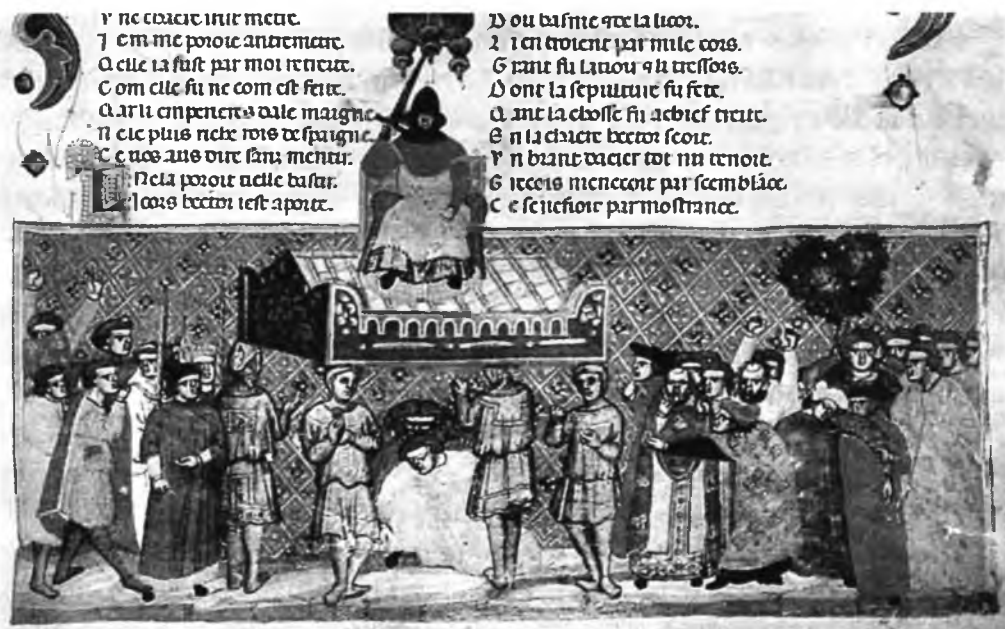 J em me poroie antremetre.
Q elle ia fust par moi retreite.
C om elle fu ne com est feite.
N e le plus riche rois despaigne.
C e uos aus dire sanz mentir.
N e la poroit nelle bastir.
L i cors hector iest aporte.
D ou basme & de la licor.
Q i en troient par mile cors.
G rant fu lauoir & li tressors.
D ont la sepulture fu fete.
Q ant la chosse fu a chief treite.
E n la chaiere hector seoit.
V n brant dacier tot nu tenoit.
G recois menecoit par semblāce.
C e senefioit par mostrance.